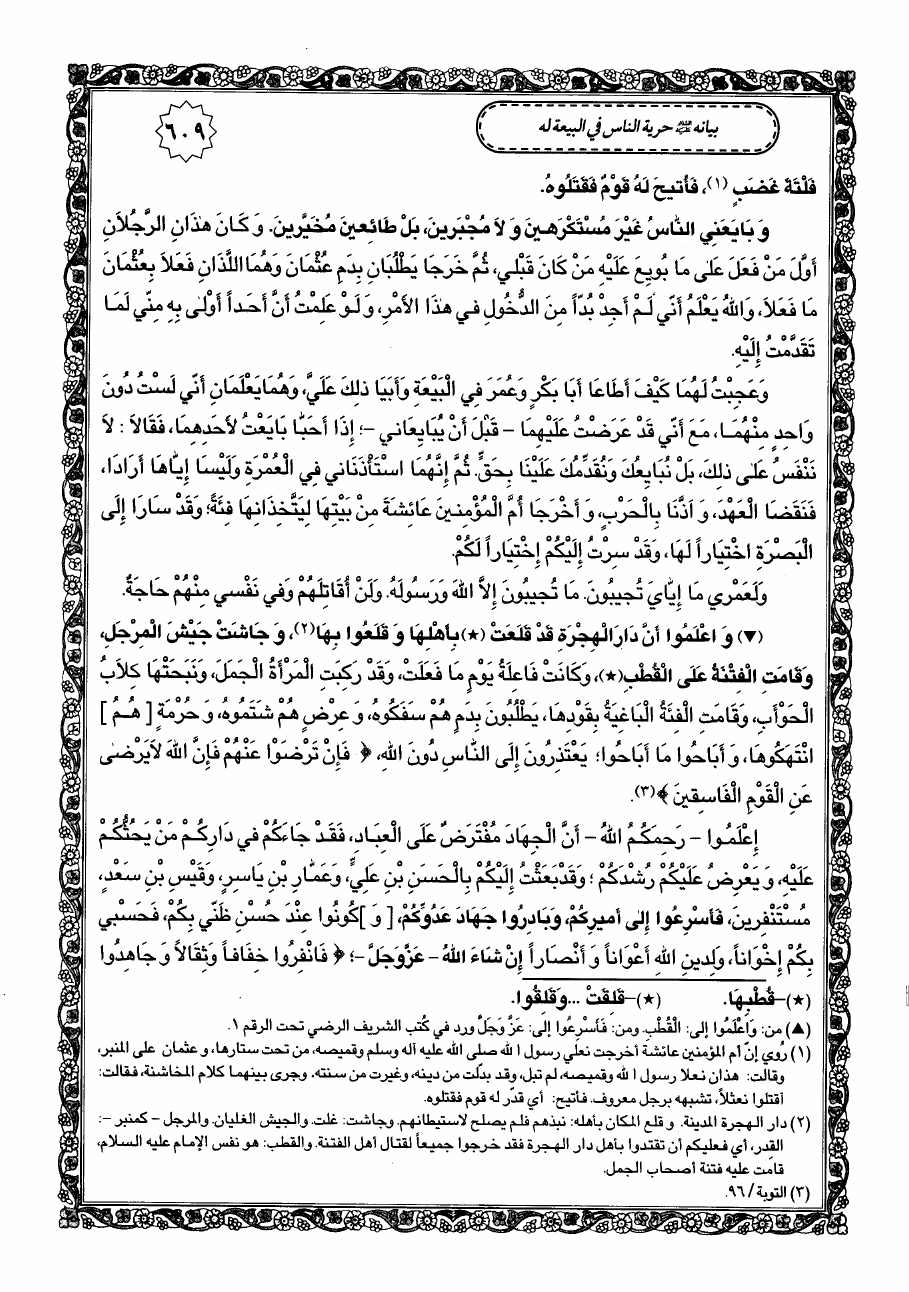 بيانه عليه السلام حرية الناس في البيعة له
٦٠٩
فَلْتَةُ غَضَبٍ (١)، فَأُتيحَ لَهُ قَوْمٌ فَقَتَلُوهُ.
وَ بَايَعَنِي النَّاسُ غَيْرَ مُسْتَكْرَهينَ وَ لاَ مُجْبَرينَ، بَلْ طَائِعينَ مُخَيَّرينَ. وَ كَانَ هٰذَانِ الرَّجُلاَنِ
أَوَّلَ مَنْ فَعَلَ عَلىٰ مَا بُويِعَ عَلَيْهِ مَنْ كَانَ قَبْلي، ثُمَّ خَرَجَا يَطْلُبَانِ بِدَمِ عُثْمَانَ وَهُمَا اللَّذَانِ فَعَلاَ بِعُثْمَانَ
مَا فَعَلاَ، وَاللهُ يَعْلَمُ أَنّي لَمْ أَجِدْ بُدّاً مِنَ الدُّخُولِ في هٰذَا الأَمْرِ، وَ لَوْ عَلِمْتُ أَنَّ أَحَداً أَوْلىٰ بِهِ مِنّي لَمَا
تَقَدَّمْتُ إِلَيْهِ.
وَعَجِبْتُ لَهُمَا كَيْفَ أَطَاعَا أَبَا بَكْرٍ وَعُمَرَ فِي الْبَيْعَةِ وَأَبَيَا ذٰلِكَ عَلَيَّ، وَهُمَايَعْلَمَانِ أَنّي لَسْتُ دُونَ
وَاحِدٍ مِنْهُمَا، مَعَ أَنّي قَدْ عَرَضْتُ عَلَيْهِمَا – قَبْلَ أَنْ يُبَايِعَاني –؛ إِذَا أَحَبَّا بَايَعْتُ لأَحَدِهِمَا، فَقَالاَ : لاَ
نَنْفَسُ عَلىٰ ذٰلِكَ، بَلْ نُبَايِعُكَ وَنُقَدِّمُكَ عَلَيْنَا بِحَقٍّ. ثُمَّ إِنَّهُمَا اسْتَأْذَنَاني فِي الْعُمْرَةِ وَلَيْسَا إِيَّاهَا أَرَادَا،
فَنَقَضَا الْعَهْدَ، وَ أَذَّنَا بِالْحَرْبِ، وَ أَخْرَجَا أُمَّ الْمُؤْمِنينَ عَائِشَةَ مِنْ بَيْتِهَا لِيَتَّخِذَانِهَا فِئَةً؛ وَقَدْ سَارَا إِلَى
الْبَصْرَةِ اخْتِيَاراً لَهَا، وَقَدْ سِرْتُ إِلَيْكُمْ إِخْتِيَاراً لَكُمْ.
وَلَعَمْري مَا إِيَّايَ تُجيبُونَ. مَا تُجيبُونَ إِلاَّ اللهَ وَرَسُولَهُ. وَلَنْ أُقَاتِلَهُمْ وَفي نَفْسي مِنْهُمْ حَاجَةٌ.
(▼) وَ اعْلَمُوا أَنَّ دَارَالْهِجْرَةِ قَدْ قَلَعَتْ (★) بِأَهْلِهَا وَ قَلَعُوا بِهَا(٢)، وَ جَاشَتْ جَيْشَ الْمِرْجَلِ،
وَقَامَتِ الْفِتْنَةُ عَلَى الْقُطْبِ(★)، وَكَانَتْ فَاعِلَةُ يَوْمٍ مَا فَعَلَتْ، وَقَدْ رَكِبَتِ الْمَرْأَةُ الْجَمَلَ، وَنَبَحَتْهَا كِلاَبُ
الْحَوْأَبِ، وَقَامَتِ الْفِئَةُ الْبَاغِيَةُ بِقَوْدِهَا، يَطْلُبُونَ بِدَمٍ هُمْ سَفَكُوهُ، وَ عِرْضٍ هُمْ شَتَمُوهُ، وَ حُرْمَةٍ [ هُمُ ]
انْتَهَكُوهَا، وَ أَبَاحُوا مَا أَبَاحُوا؛ يَعْتَذِرُونَ إِلَى النَّاسِ دُونَ اللهِ، ﴿ فَإِنْ تَرْضَوْا عَنْهُمْ فَإِنَّ اللهَ لاَيَرْضىٰ
عَنِ الْقَوْمِ الْفَاسِقينَ ﴾(٣).
إِعْلَمُوا – رَحِمَكُمُ اللهُ – أَنَّ الْجِهَادَ مُفْتَرَضٌ عَلَى الْعِبَادِ، فَقَدْ جَاءَكُمْ في دَارِكُمْ مَنْ يَحُثُّكُمْ
عَلَيْهِ، وَ يَعْرِضُ عَلَيْكُمْ رُشْدَكُمْ ؛ وَقَدْبَعَثْتُ إِلَيْكُمْ بِالْحَسَنِ بْنِ عَلِيٍّ، وَعَمَّارِ بْنِ يَاسِرٍ، وَقَيْسِ بْنِ سَعْدٍ،
مُسْتَنْفِرينَ، فَأَسْرِعُوا إِلىٰ أَميرِكُمْ، وَبَادِرُوا جِهَادَ عَدُوِّكُمْ، [ وَ ]كُونُوا عِنْدَ حُسْنِ ظَنّي بِكُمْ، فَحَسْبي
بِكُمْ إِخْوَاناً، وَلِدينِ اللهِ أَعْوَاناً وَ أَنْصَاراً إِنْ شَاءَ اللهُ – عَزَّوَجَلَّ –؛ ﴿ فَانْفِرُوا خِفَافاً وَثِقَالاً وَ جَاهِدُوا
(★)–قُطْبِهَا. (★)–قَلِقَتْ ...وَقَلِقُوا.
(▲) من: وَاعْلَمُوا إلى: الْقُطْبِ. ومن: فَأَسْرِعُوا إلى: عَزَّ وَجَلَّ ورد في كُتب الشريف الرضي تحت الرقم ١.
(١) رُوي إنّ أم المؤمنين عائشة أخرجت نعلي رسول الله صلى الله عليه آله وسلم وقميصه، من تحت ستارها، و عثمان على المنبر،
وقالت: هذان نعلا رسول الله وقميصه، لم تبل، وقد بدلّت من دينه، وغيرت من سنته. وجرى بينهما كلام المخاشنة، فقالت:
أقتلوا نعثلاً، تشبهه برجل معروف. فأتيح: أي قدّر له قوم فقتلوه.
(٢) دار الهجرة المدينة. و قلع المكان بأهله: نبذهم فلم يصلح لاستيطانهم. وجاشت: غلت. والجيش الغليان. والمرجل – كمنبر –:
القدر، أي فعليكم أن تقتدوا بأهل دار الهجرة فقد خرجوا جميعاً لقتال أهل الفتنة. والقطب: هو نفس الإمام عليه السلام،
قامت عليه فتنة أصحاب الجمل.
(٣) التوبة / ٩٦.